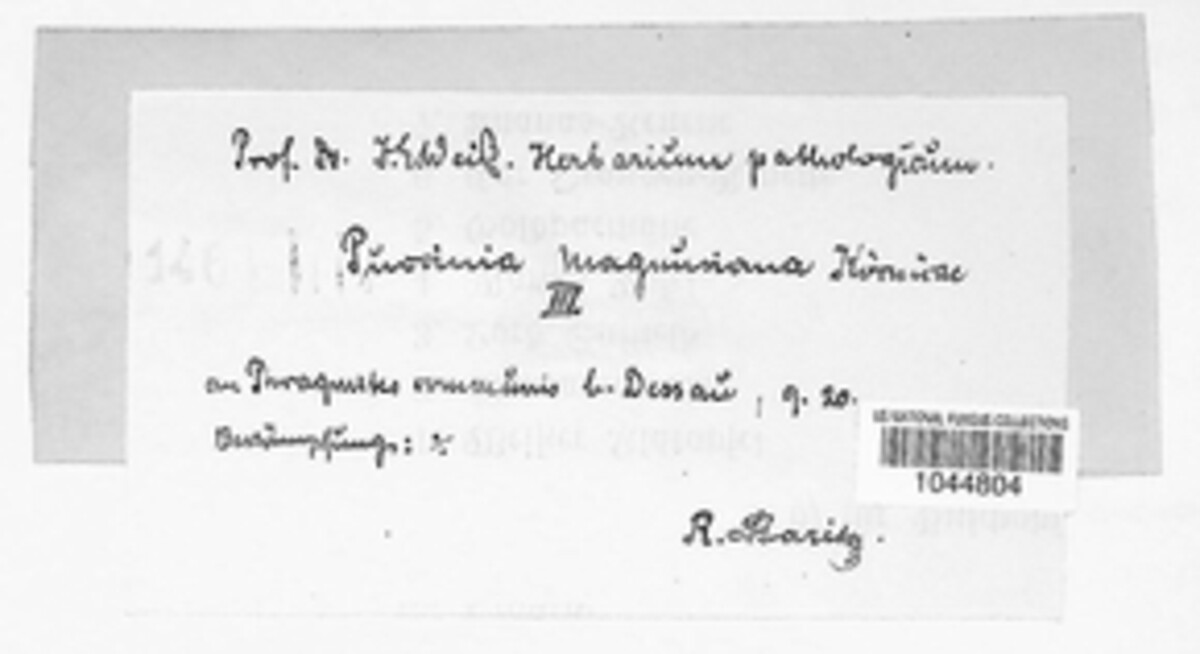 Prof. Dr. Herbarium pathologicum.
Puccinia Magnusiana Körnicke
III
an Phragmites communis b. Dessau, 9. 20.
Bekämpfung: :
US NATIONAL FUNGUS COLLECTIONS
1044804
R. Staritz.